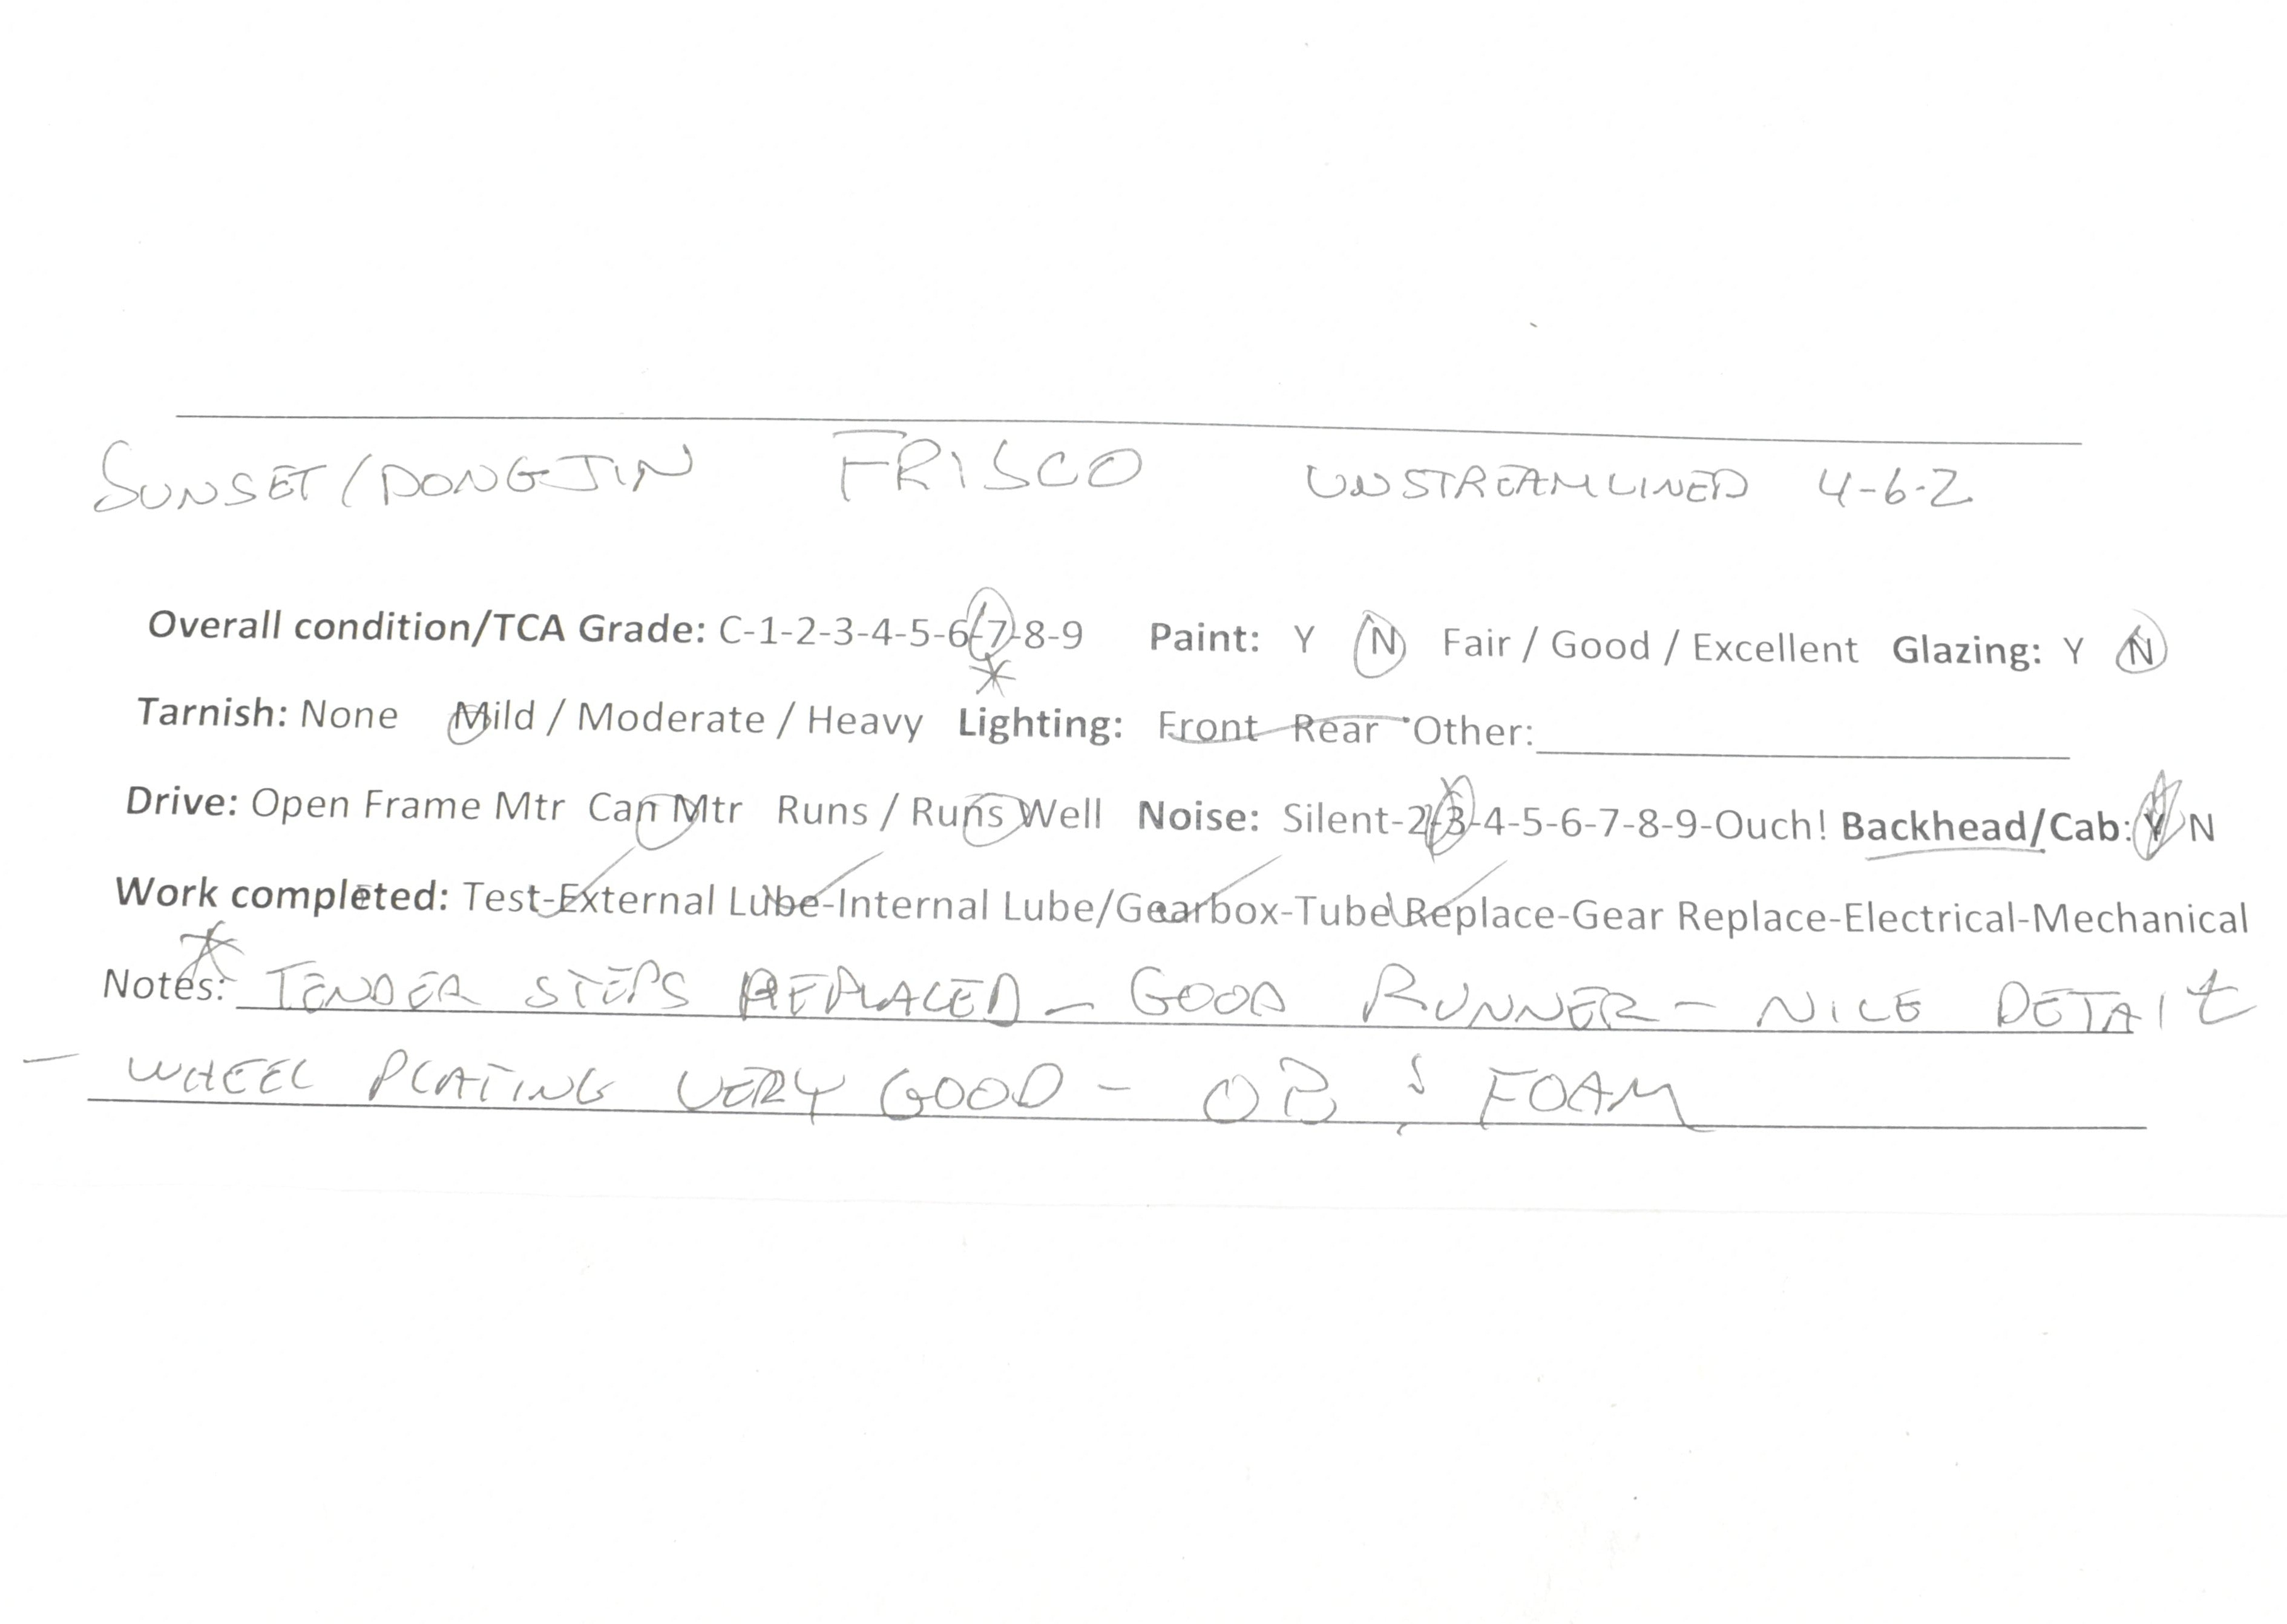 SUNSET/DONGJIN FRISCO UNSTREAMLINED 4-6-2
Overall condition/TCA Grade: C-1-2-3-4-5-6-7-8-9 Paint: Y N Fair / Good / Excellent Glazing: Y N
Tarnish: None Mild / Moderate / Heavy Lighting: Front Rear Other:
Drive: Open Frame Mtr Can Mtr Runs / Runs Well Noise: Silent-2-3-4-5-6-7-8-9-Ouch! Backhead/Cab: Y N
Work completed: Test-External Lube-Internal Lube/Gearbox-Tube Replace-Gear Replace-Electrical-Mechanical
Notes: * TENDER STEPS REPLACED - GOOD RUNNER - NICE DETAIL
- WHEEL PLATING VERY GOOD - OB & FOAM